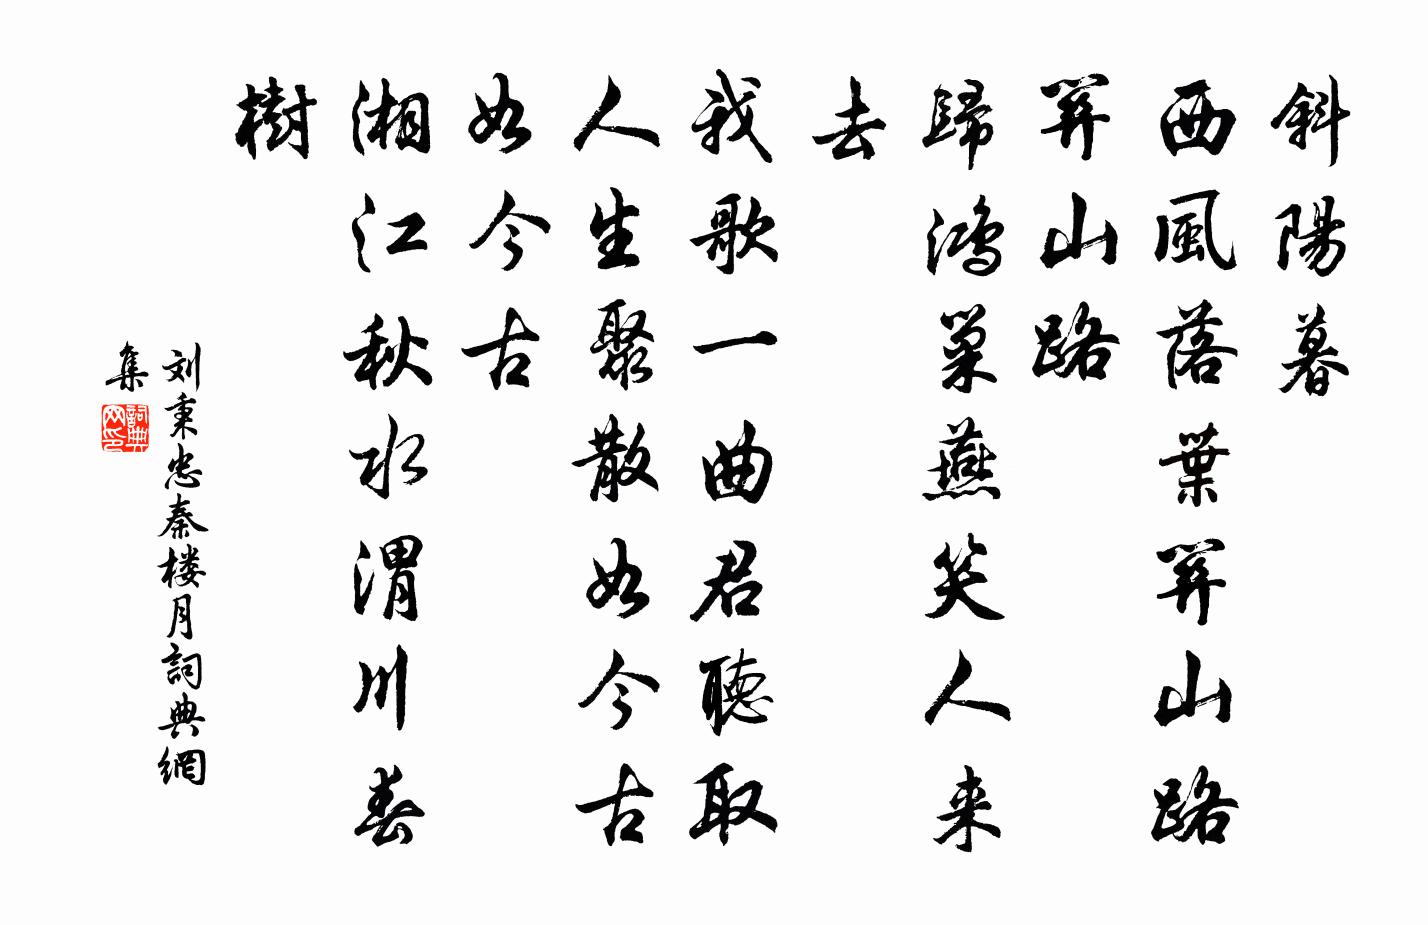 斜陽暮
西風落葉關山路
關山路
歸鴻巢燕笑人来
去
我歌一曲君聽取
人生聚散如今古
如今古
湘江秋水渭川春
樹
刘秉忠秦楼月詞典網
集
詞典
网印